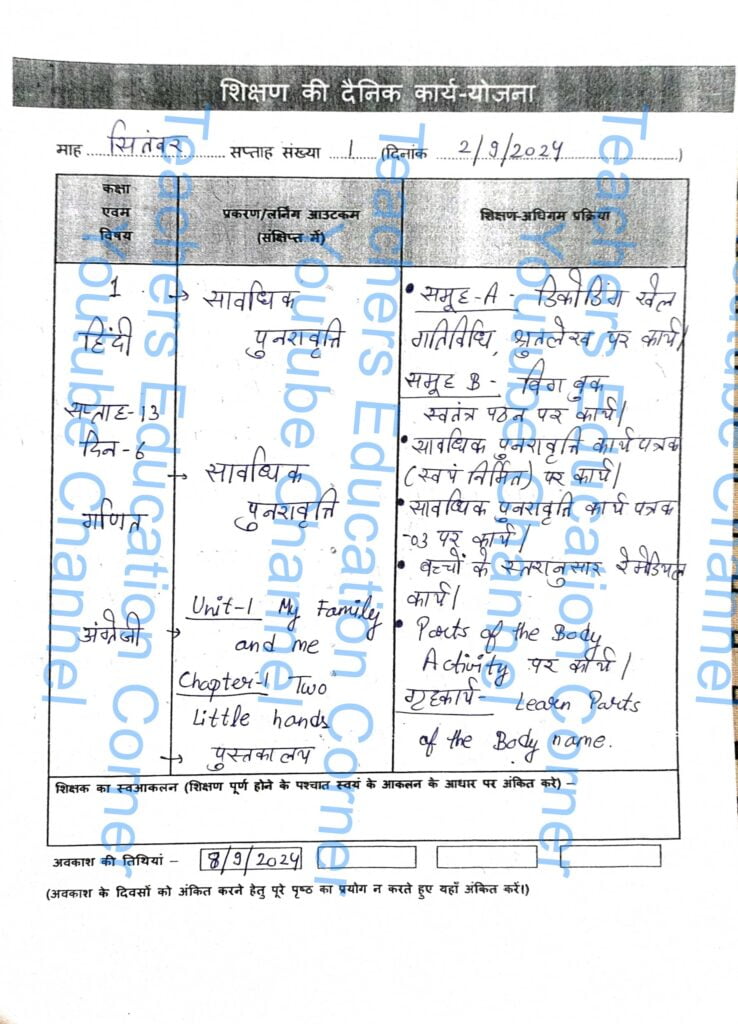 शिक्षण की दैनिक कार्य-योजना
माह सितंबर सप्ताह संख्या 1 (दिनांक 2/9/2024)
कक्षा
एवम
विषय
प्रकरण/लर्निंग आउटकम
(संक्षिप्त में)
शिक्षण-अधिगम प्रक्रिया
1
हिंदी
सप्ताह-13
दिन-6
गणित
अंग्रेजी
→ सावधिक
पुनरावृत्ति
→ सावधिक
पुनरावृत्ति
→ Unit-1 My Family
and me
Chapter-1 Two
Little hands
→ पुस्तकालय
• समूह-A - डिकोडिंग खेल
गतिविधि, श्रुतलेख पर कार्य।
समूह B - बिग बुक
स्वतंत्र पठन पर कार्य।
• सावधिक पुनरावृत्ति कार्य पत्रक
(स्वयं निर्मित) पर कार्य।
• सावधिक पुनरावृत्ति कार्य पत्रक
-03 पर कार्य।
• बच्चों के स्तरानुसार रेमेडियल
कार्य।
• Parts of the Body
Activity पर कार्य।
गृहकार्य - Learn Parts
of the Body name.
शिक्षक का स्वआकलन (शिक्षण पूर्ण होने के पश्चात स्वयं के आकलन के आधार पर अंकित करे) –
अवकाश की तिथियां – 8/9/2024
(अवकाश के दिवसों को अंकित करने हेतु पूरे पृष्ठ का प्रयोग न करते हुए यहाँ अंकित करें।)
Teachers Education Corner
Youtube Channel
Teachers Education Corner
Youtube Channel
Teachers Education Corner
Youtube Channel